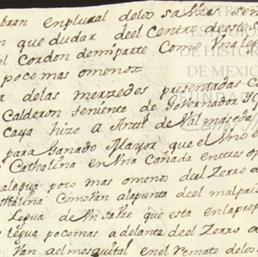 bran enplural delos sa
n que dudar deel Centro deeste s
l Cordon demiparte Corre
pocomas omenos
a delas merzedes presentadas C
Calderon teniente de Governador
Caya hizo a de Valmaseda
para Ganado Mayor que el Uno e
Catholina en Una Cañada entre
legua poco mas omenos deel Zerro
tholina Constan alapunta del malpais
Legua de que esta enlaprop
legua pocomas a delante deel Zerro
van aelmesquital en el remate delos
DE HISTORI
DE MÉXICO